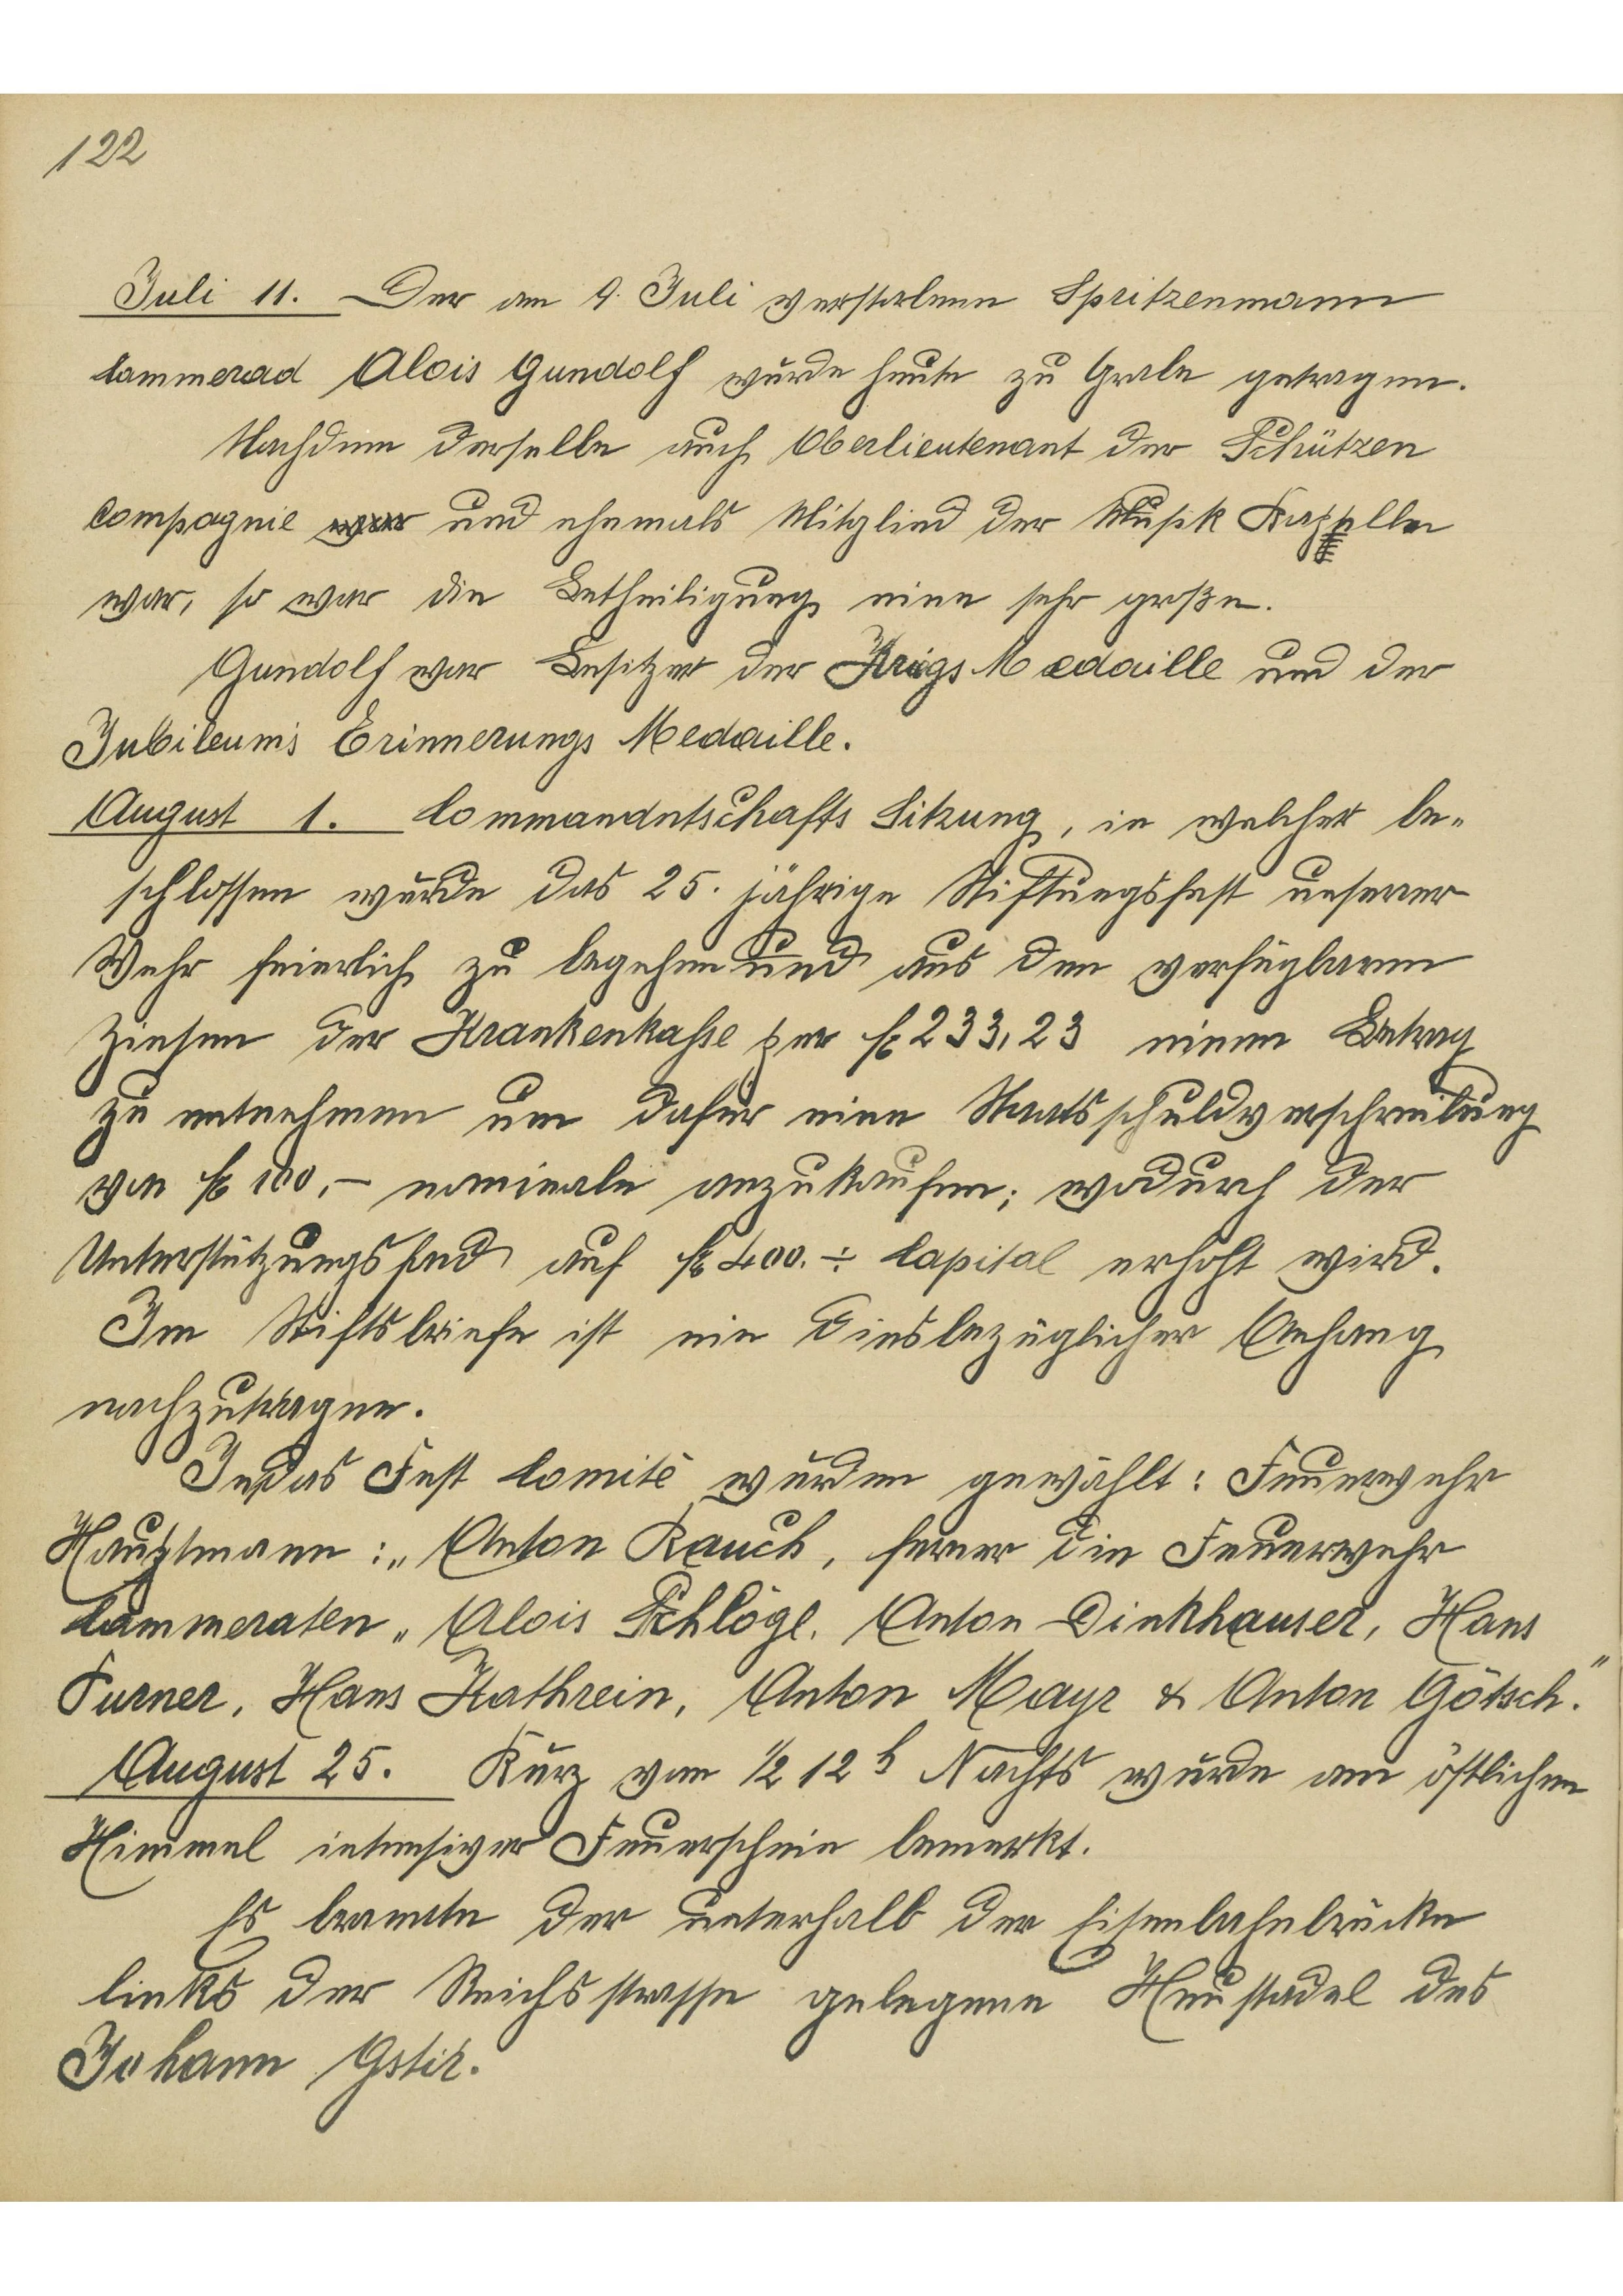 122
Juli 11. Der am 9. Juli verstorbene Spritzenmann
Cammerad Alois Gundolf wurde heute zu Grabe getragen.
Nachdem derselbe auch Oberlieutenant der Schützen
Compagnie war und ehemals Mitglied der Musik Kappelle
war, so war die Betheiligung eine sehr große.
Gundolf war Besitzer der Krigs Medaille und der
Jubileums Erinnerungs Medaille.
August 1. Commandntschafts Sitzung, in welcher be-
schlossen wurde das 25. jährige Stiftungsfest unserer
Wehr feierlich zu begehen und aus den verfügbaren
Zinsen der Krankenkasse per fl 233,23 einen Betrag
zu entnehmen um dafür eine Staatsschuldverschreibung
von fl 100,- nominale anzukaufen; wodurch der
Unterstützungsfond auf fl 400.- Capital erhöht wird.
Im Stiftsbriefe ist ein diesbezüglicher Anhang
nachzutragen.
In das Fest Comité wurden gewählt: Feuerwehr
Hauptmann :„ Anton Rauch, ferner die Feuerwehr
Cammeraten „ Alois Schlögl, Anton Dinkhauser, Hans
Purner, Hans Kathrein, Anton Mayr & Anton Götsch."
August 25. Kurz von 1/2 12 h Nachts wurde am östlichen
Himmel intensiver Feuerschein bemerkt.
Es brannte der unterhalb der Eisenbahnbrücke
links der Reichsstrasse gelegene Heustadel des
Johann Gstir.